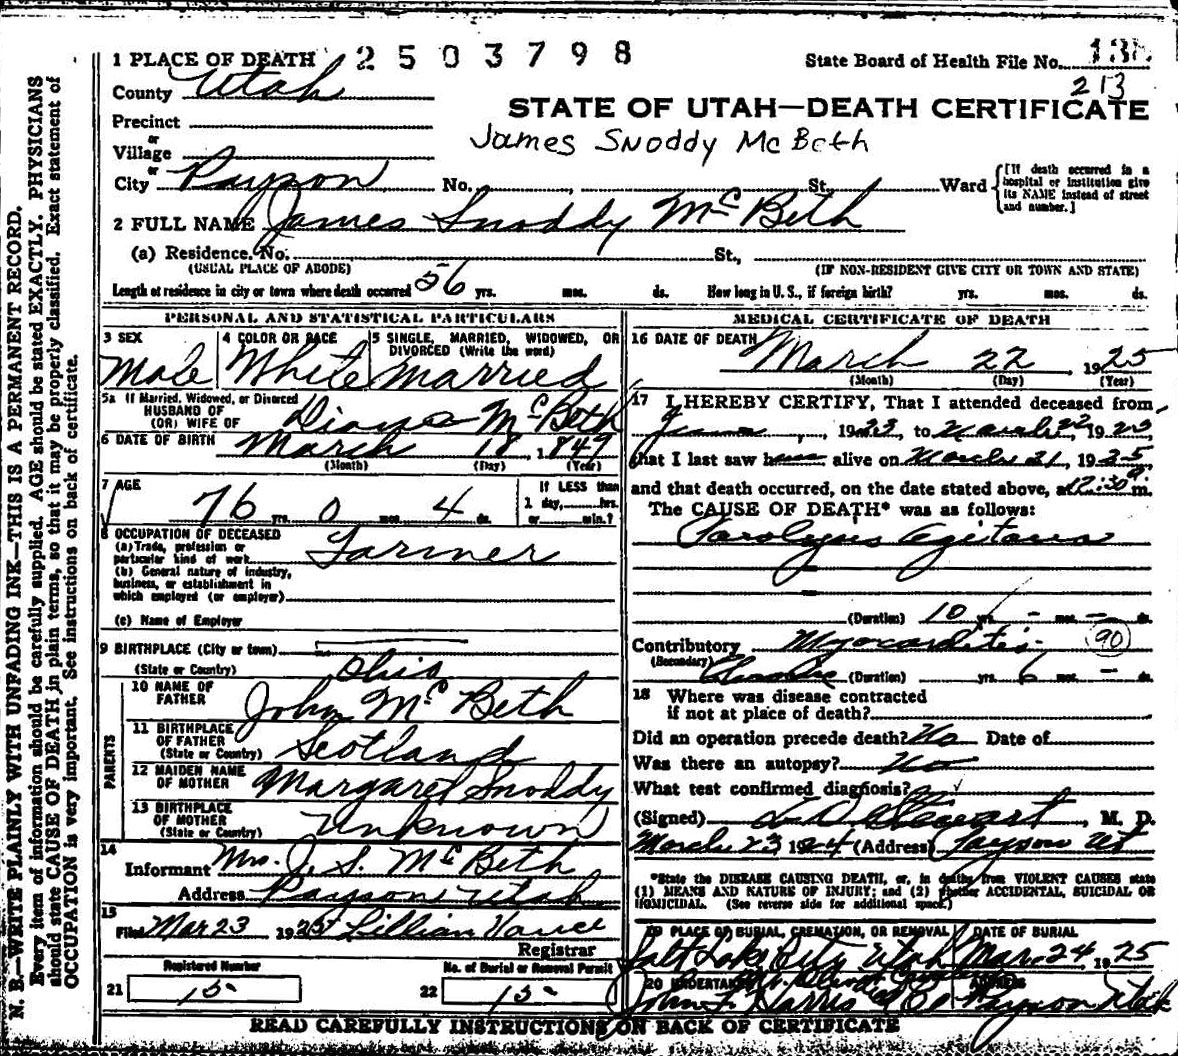 N. B.—WRITE PLAINLY WITH UNFADING INK—THIS IS A PERMANENT RECORD.
Every item of information should be carefully supplied. AGE should be stated EXACTLY. PHYSICIANS
should state CAUSE OF DEATH in plain terms, so that it may be properly classified. Exact statement of
OCCUPATION is very important. See instructions on back of certificate.
1 PLACE OF DEATH 2503798
State Board of Health File No.
213
County Utah
STATE OF UTAH—DEATH CERTIFICATE
Precinct
James Snoddy McBeth
or
Village
or
City Payson No. , St. Ward
[If death occurred in a
hospital or institution give
its NAME instead of street
and number.]
2 FULL NAME James Snoddy McBeth
(a) Residence. No. St.,
(USUAL PLACE OF ABODE) (IF NON-RESIDENT GIVE CITY OR TOWN AND STATE)
Length of residence in city or town where death occurred 56 yrs. mos. ds. How long in U. S., if foreign birth? yrs. mos. ds.
PERSONAL AND STATISTICAL PARTICULARS
3 SEX 4 COLOR OR RACE 5 SINGLE, MARRIED, WIDOWED, OR
DIVORCED (Write the word)
Male White Married
5a If Married, Widowed, or Divorced
HUSBAND OF
(OR) WIFE OF McBeth
6 DATE OF BIRTH March 18, 1849
(Month) (Day) (Year)
7 AGE If LESS than
76 yrs. 0 mos. 4 ds. 1 day, hrs.
or min.?
8 OCCUPATION OF DECEASED
(a) Trade, profession or
particular kind of work Farmer
(b) General nature of industry,
business, or establishment in
which employed (or employer)
(c) Name of Employer
9 BIRTHPLACE (City or town)
(State or Country) Ohio
PARENTS
10 NAME OF
FATHER John McBeth
11 BIRTHPLACE
OF FATHER
(State or Country) Scotland
12 MAIDEN NAME
OF MOTHER Margaret Snoddy
13 BIRTHPLACE
OF MOTHER
(State or Country) Unknown
14
Informant Mrs. J. S. McBeth
Address Payson Utah
15
Filed Mar 23 1925 Lillian Vance
Registrar
Registered Number No. of Burial or Removal Permit
21 15 22 15
MEDICAL CERTIFICATE OF DEATH
16 DATE OF DEATH March 22 1925
(Month) (Day) (Year)
17 I HEREBY CERTIFY, That I attended deceased from
, 19 , to March 22, 19
that I last saw h alive on March 21, 1925,
and that death occurred, on the date stated above, at 12:30 m.
The CAUSE OF DEATH* was as follows:
Paralysis Agitans
(Duration) 10 yrs. - mos. - ds.
Contributory Myocarditis 90
(Secondary) Chronic (Duration) yrs. 6 mos. - ds.
18 Where was disease contracted
if not at place of death?
Did an operation precede death? No Date of
Was there an autopsy? No
What test confirmed diagnosis?
(Signed) L D Stewart, M. D.
March 23 1924 (Address) Payson Ut
*State the DISEASE CAUSING DEATH, or, in deaths from VIOLENT CAUSES state
(1) MEANS AND NATURE OF INJURY; and (2) whether ACCIDENTAL, SUICIDAL OR
HOMICIDAL. (See reverse side for additional space.)
19 PLACE OF BURIAL, CREMATION, OR REMOVAL DATE OF BURIAL
Salt Lake City Utah Mar. 24 1925
20 UNDERTAKER ADDRESS
John F. Harris Payson Utah
READ CAREFULLY INSTRUCTIONS ON BACK OF CERTIFICATE